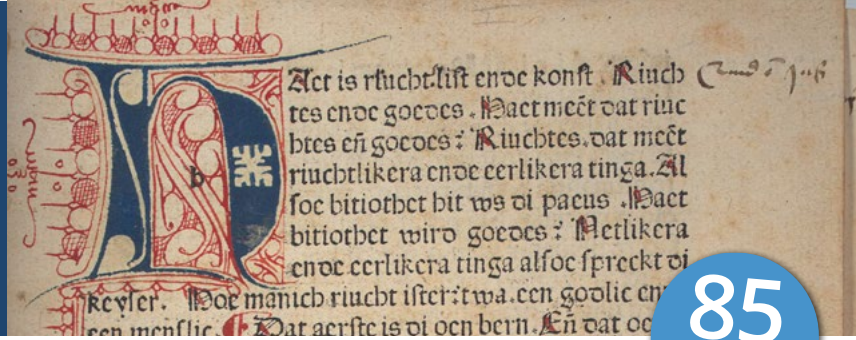 HAet is riucht. list ende konst. Riuch
tes ende goedes. Haet meēt dat riuc
htes eñ goedes? Riuchtes. dat meēt
riuchtlikera ende eerlikera tinga. Al
soe bitiothet hit ws di paeus. Haet
bitiothet wird goedes? Netlikera
ende eerlikera tinga alsoe spreckt di
keyser. Hoe manich riucht ister? twa. een godlic en
een menslic. Dat aerste is di oen bern. Eñ dat oe
85